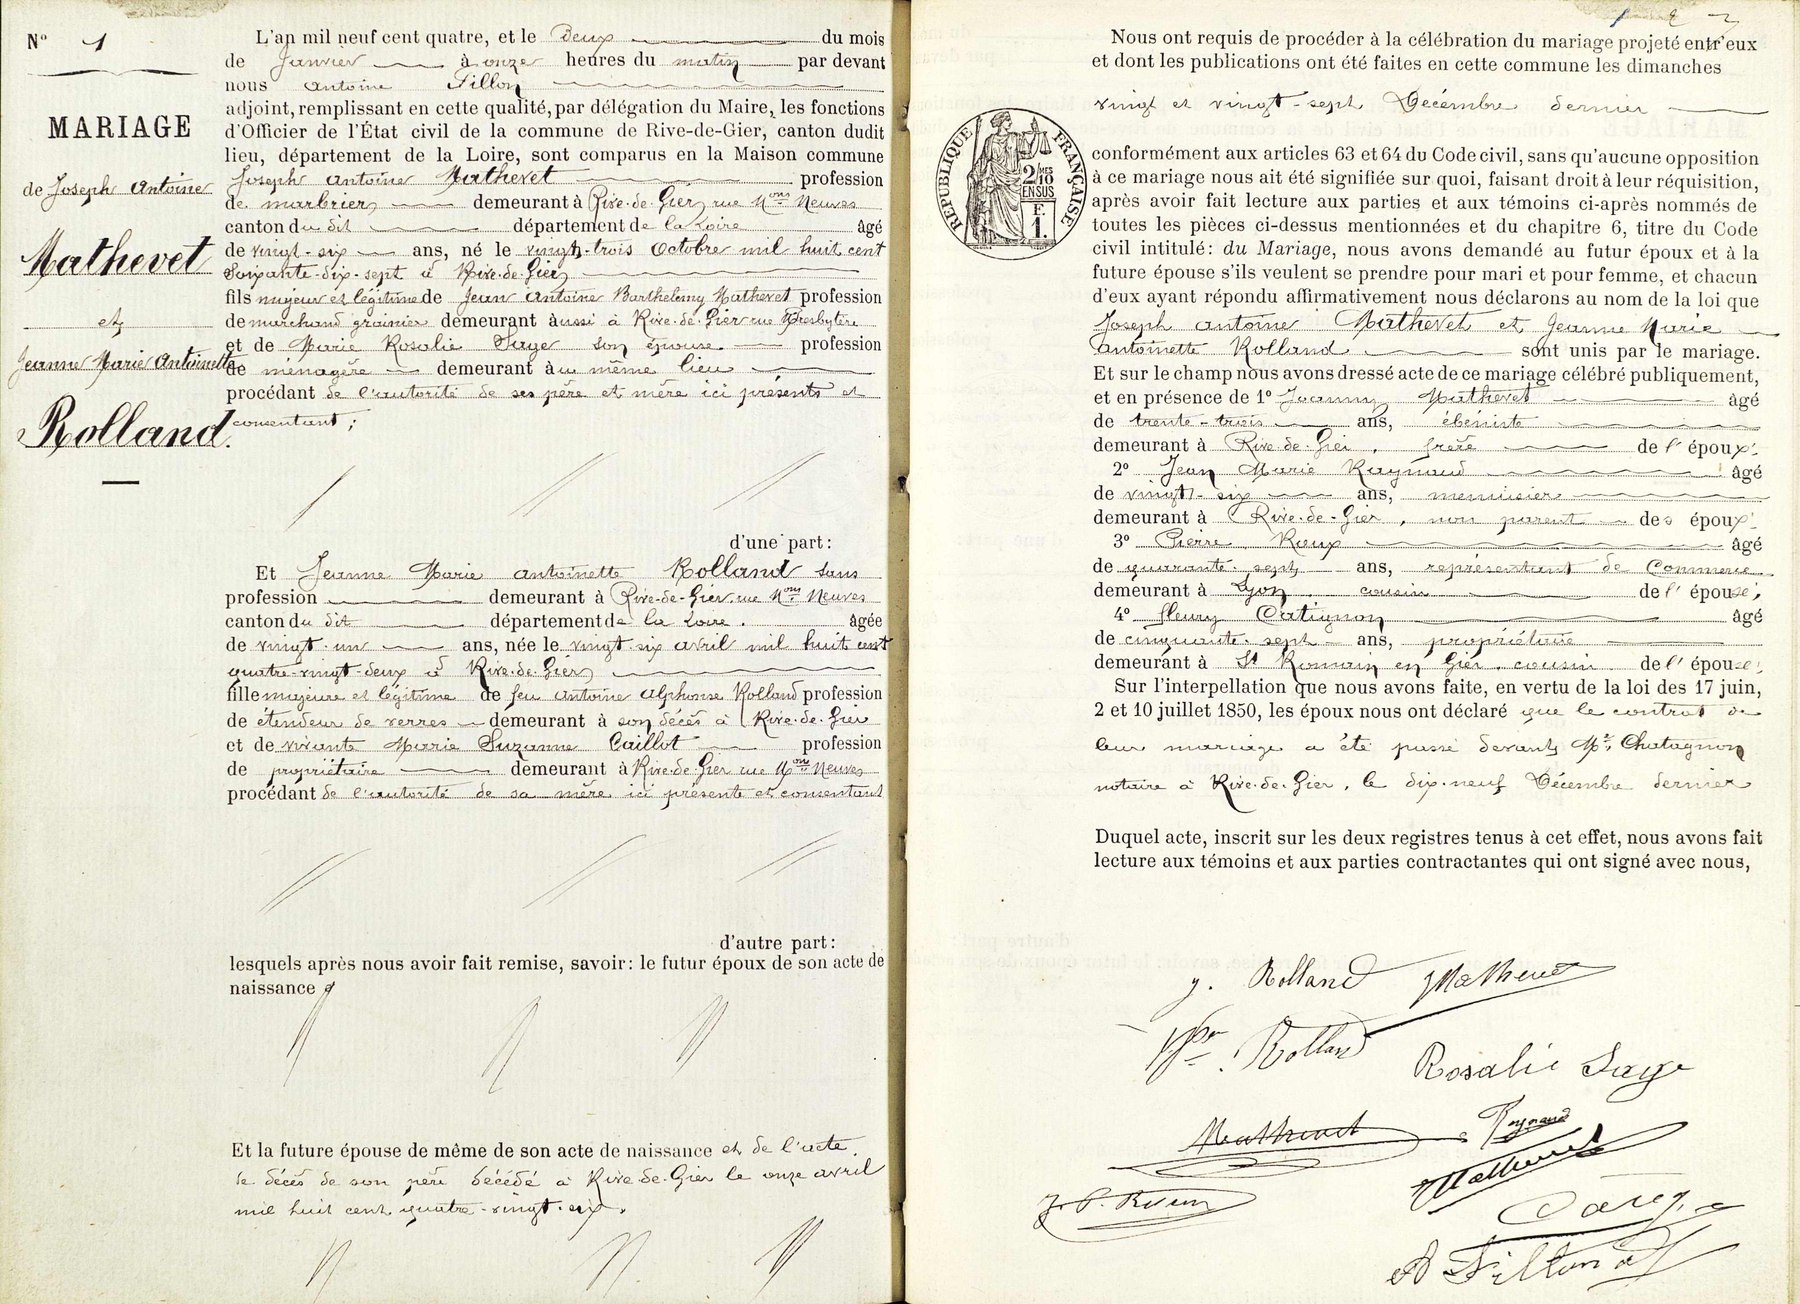 N° 1
MARIAGE
de Joseph Antoine
Mathevet
et
Jeanne Marie Antoinette
Rolland.
L'an mil neuf cent quatre, et le Deux du mois
de Janvier à onze heures du matin par devant
nous Antoine Fillon
adjoint, remplissant en cette qualité, par délégation du Maire, les fonctions
d'Officier de l'État civil de la commune de Rive-de-Gier, canton dudit
lieu, département de la Loire, sont comparus en la Maison commune
Joseph Antoine Mathevet profession
de marbrier demeurant à Rive-de-Gier, rue Mons Neuves
canton du dit département de la Loire âgé
de vingt-six ans, né le vingt-trois Octobre mil huit cent
soixante-dix-sept à Rive-de-Gier
fils majeur et légitime de Jean Antoine Barthelemy Mathevet profession
de marchand grainier demeurant aussi à Rive-de-Gier rue Presbytère
et de Marie Rosalie Saye son épouse profession
de ménagère demeurant au même lieu
procédant de l'autorité de ses père et mère ici présents et
consentant ;
d'une part :
Et Jeanne Marie Antoinette Rolland sans
profession demeurant à Rive-de-Gier rue Mons Neuves
canton du dit département de la Loire. âgée
de vingt-un ans, née le vingt-six avril mil huit cent
quatre-vingt-deux à Rive-de-Gier
fille majeure et légitime de feu Antoine Alphonse Rolland profession
de étendeur de verres demeurant à son décès à Rive-de-Gier
et de vivante Marie Suzanne Caillot profession
de propriétaire demeurant à Rive-de-Gier rue Mons Neuves
procédant de l'autorité de sa mère ici présente et consentant
d'autre part :
lesquels après nous avoir fait remise, savoir : le futur époux de son acte de
naissance
Et la future épouse de même de son acte de naissance et de l'acte
de décès de son père décédé à Rive-de-Gier le onze avril
mil huit cent quatre-vingt-six.
1 2 3
Nous ont requis de procéder à la célébration du mariage projeté entr'eux
et dont les publications ont été faites en cette commune les dimanches
vingt et vingt-sept Décembre dernier
RÉPUBLIQUE FRANÇAISE
2/10MES
EN SUS
F.
1.
conformément aux articles 63 et 64 du Code civil, sans qu'aucune opposition
à ce mariage nous ait été signifiée sur quoi, faisant droit à leur réquisition,
après avoir fait lecture aux parties et aux témoins ci-après nommés de
toutes les pièces ci-dessus mentionnées et du chapitre 6, titre du Code
civil intitulé : du Mariage, nous avons demandé au futur époux et à la
future épouse s'ils veulent se prendre pour mari et pour femme, et chacun
d'eux ayant répondu affirmativement nous déclarons au nom de la loi que
Joseph Antoine Mathevet et Jeanne Marie
Antoinette Rolland sont unis par le mariage.
Et sur le champ nous avons dressé acte de ce mariage célébré publiquement,
et en présence de 1° Joanny Mathevet âgé
de trente-trois ans, ébéniste
demeurant à Rive-de-Gier, frère de l'époux
2° Jean Marie Raynaud âgé
de vingt-six ans, menuisier
demeurant à Rive-de-Gier, non parent des époux
3° Pierre Roux âgé
de quarante-sept ans, représentant de Commerce
demeurant à Lyon, cousin de l'épouse ;
4° fleury Catignon âgé
de cinquante-sept ans, propriétaire
demeurant à St Romain en Gier, cousin de l'épouse ;
Sur l'interpellation que nous avons faite, en vertu de la loi des 17 juin,
2 et 10 juillet 1850, les époux nous ont déclaré que le contrat de
leur mariage a été passé devant Me Chatagnon
notaire à Rive-de-Gier, le dix-neuf Décembre dernier
Duquel acte, inscrit sur les deux registres tenus à cet effet, nous avons fait
lecture aux témoins et aux parties contractantes qui ont signé avec nous,
J. Rolland Mathevet
Vve Rolland
Rosalie Saye
Mathevet Raynaud
Mathevet
A Fillon